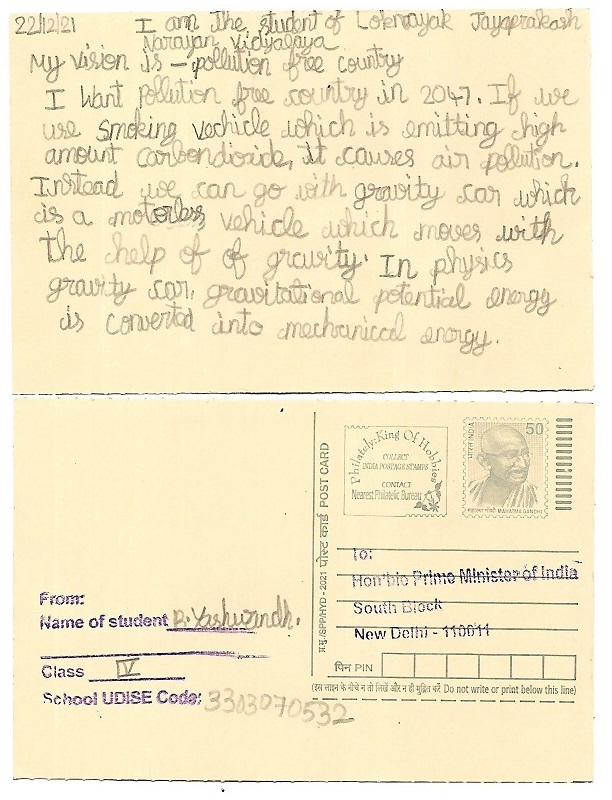 22/12/21 I am the student of Loknayak Jayaprakash
Narayan Vidyalaya
My vision is - pollution free country
I want pollution free country in 2047. If we
use smoking vechicle which is emitting high
amount carbondioxide, it causes air pollution.
Instead we can go with gravity car which
is a motorless vehicle which moves with
the help of of gravity. In physics
gravity car, gravitational potential energy
is converted into mechanical energy.
Philately:King Of Hobbies
COLLECT
INDIA POSTAGE STAMPS
CONTACT
Nearest Philatelic Bureau
भारत INDIA
50
महात्मा गाँधी MAHATMA GANDHI
प्र.मु./SPP/HYD - 2021 पोस्ट कार्ड POST CARD
To:
Hon'ble Prime Minister of India
South Block
New Delhi - 110011
पिन PIN
(इस लाइन के नीचे न तो लिखें और न ही मुद्रित करें Do not write or print below this line)
From:
Name of student B. Yashwandh.
Class IV
School UDISE Code: 3303070532